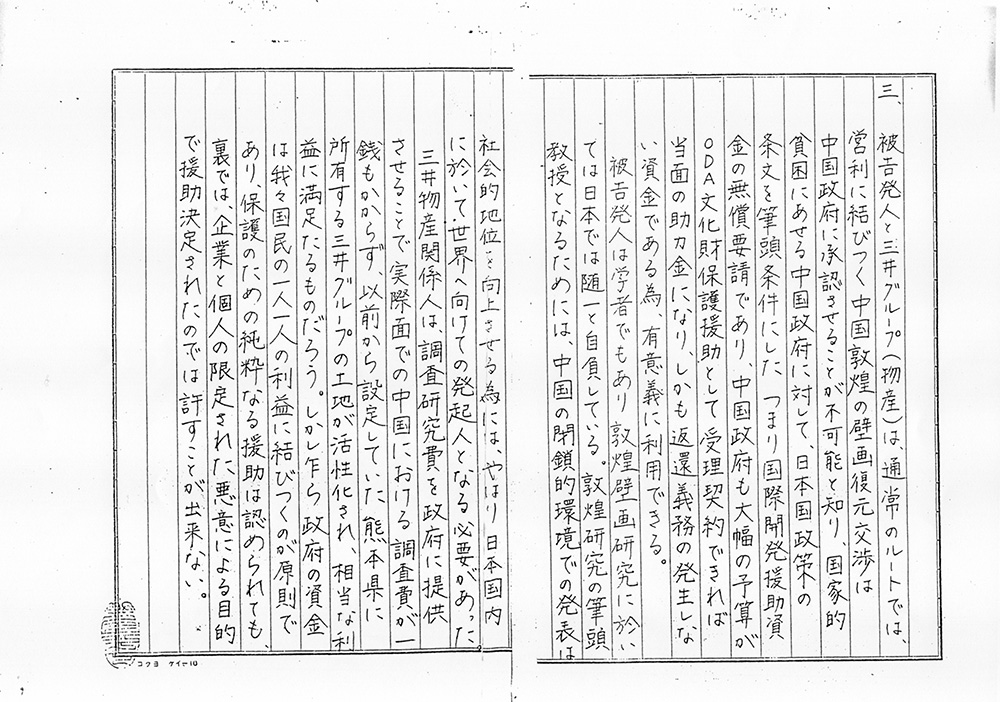 三、
被告発人と三井グループ(物産)は、通常のルートでは、
営利に結びつく中国敦煌の壁画復元交渉は
中国政府に承認させることが不可能と知り、国家的
貧困にあせる中国政府に対して、日本国政策の
条文を筆頭条件にした つまり国際開発援助資
金の無償要請であり、中国政府も大幅の予算が
ODA文化財保護援助として受理契約できれば
当面の助力金になり、しかも返還義務の発生しな
い資金である為、有意義に利用できる。
被告発人は学者でもあり敦煌壁画研究に於い
ては日本では随一と自負している。敦煌研究の筆頭
教授となるためには、中国の閉鎖的環境での発表は
社会的地位を向上させる為には、やはり日本国内
に於いて世界へ向けての発起人となる必要があった。
三井物産関係人は、調査研究費を政府に提供
させることで実際面での中国における調査費が一
銭もかからず、以前から設定していた熊本県に
所有する三井グループの土地が活性化され、相当な利
益に満足たるものだろう。しかし乍ら政府の資金
は我々国民の一人一人の利益に結びつくのが原則で
あり、保護のための純粋なる援助は認められても、
裏では、企業と個人の限定された悪意による目的
で援助決定されたのでは許すことが出来ない。
コクヨ ケイ-10